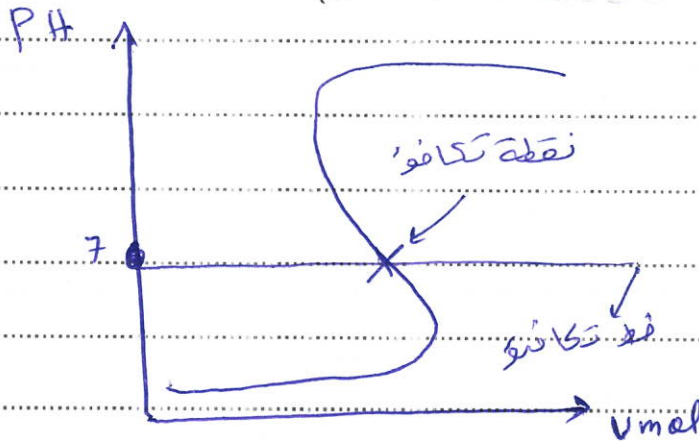 PH
نقطة تكافؤ
7
خط تكافؤ
Vmol